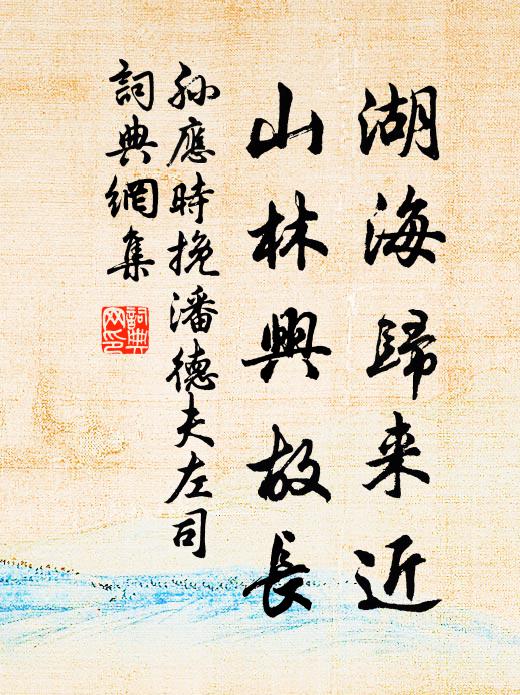 湖海歸来近
山林興故長
孫應時挽潘德夫左司
詞典網集
詞典
网印